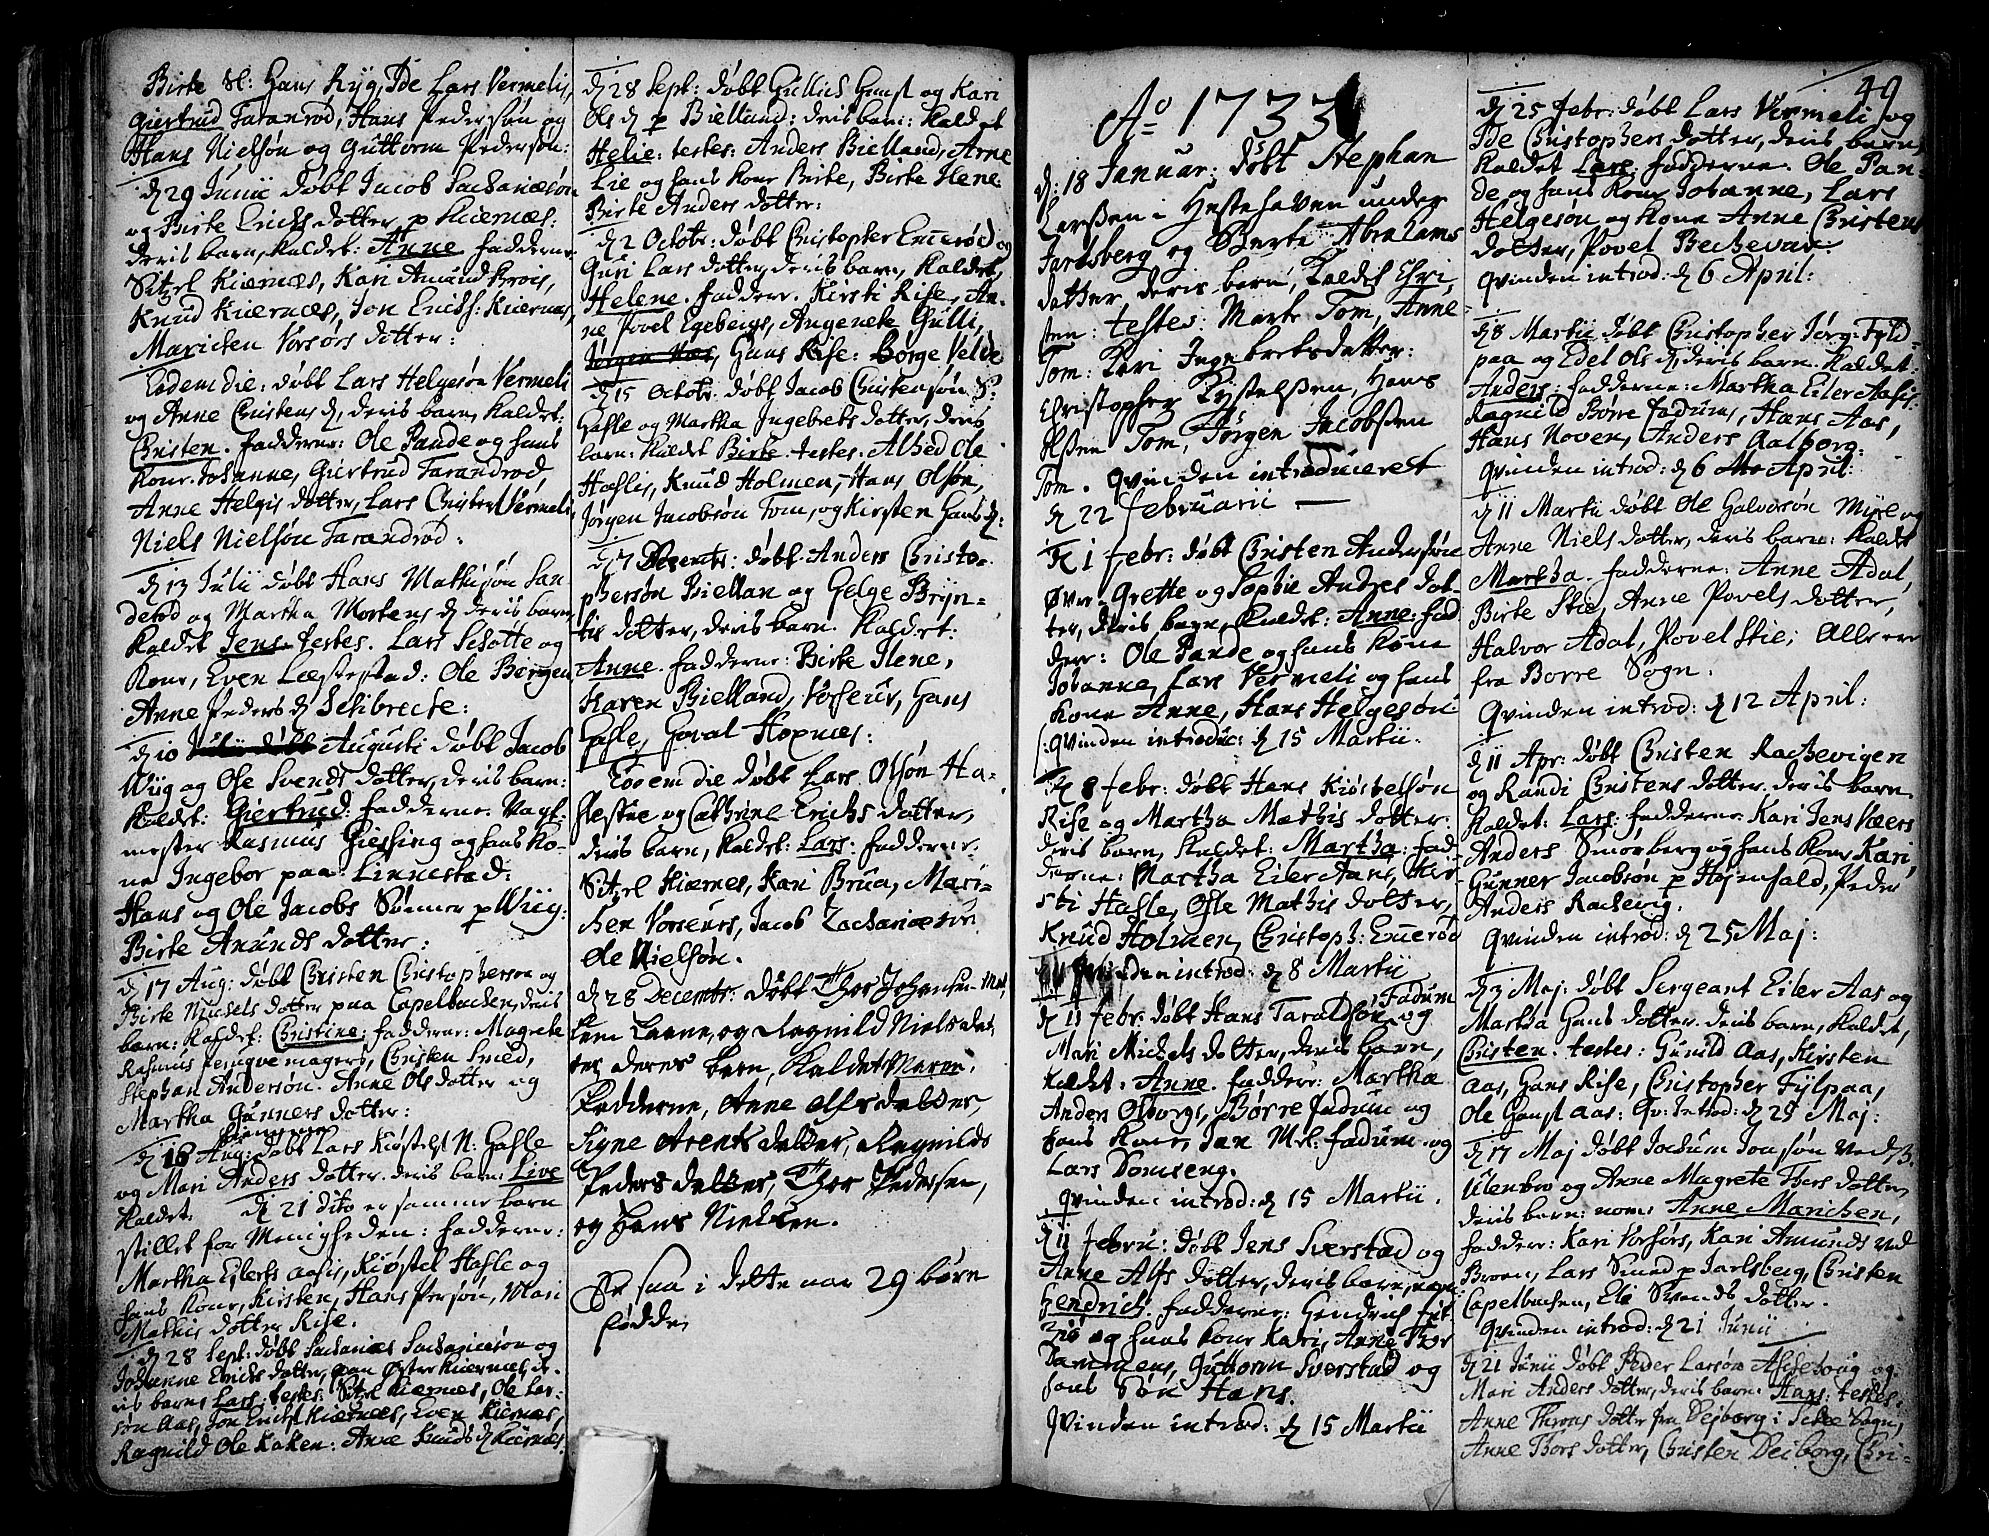 Birte Ol: Hans Ryg, Ide Lars Vermelis,
Giertrud Tarandrød, Hans Pedersøn og
Hans Nielsøn og Guttorm Pedersøn:
d 29 Junii døbt Jacob Sachariæsøn
og Birte Erichs dotter p Kiernæs:
deris barn, kaldet: Anne faddérne
Sitzel Kiernæs, Kari Amund Brois,
Knud Kiærnæs, Jon Erichs: Kiernæs,
Marichen Vorsørs dotter:
Eodem die: døbt Lars Helgesøn Vermeli
og Anne Christens d, deris barn, kaldet:
Christen. fadderne: Ole Pande og hans
Kone Johanne, Giertrud Tarandrød
Anne Helgis dotter, Lars Christen Vermeli,
Niels Nielsøn Tarandrød.
d 13 Julii døbt Hans Mathisøn San
derød og Martha Mortens d deris barn
kaldet Jens. testes. Lars Sesøtte og
Kone, Even Læstestad: Ole Bergen
Anne Peders d Schibrecte:
d 10 Augusti døbt Jacob
Wiig og Ose Svends dotter, deris barn:
kaldet: Giertrud: fadderne. Vagt-
mester Rasmus Giessing og hans Ko-
ne Ingebor paa Linnestad:
Hans og Ole Jacobs Sønner p Wiig:
Birte Amunds dotter:
d 17 Aug: døbt Christen Christophersøn og
Birte Niusels dotter paa Capelbachen, deris
barn: kaldet: Christine: fadderne: Magrete
Rasmus Pengvemagers, Christen Smed,
Stephan Andersøn. Anne Ols dotter og
Martha Gunners dotter:
d 18 Aug: døbt Lars Kiøstels N: Hasle
og Mari Anders dotter. deris barn: Live
kaldet: d 21 dito er samme barn
stillet for Menigheden: fadderne:
Martha Eylerts Aasis, Kiøstel Hasle og
hans Kone, Kirsten, Hans Persøn, Mari
Mathis dotter Rise.
d 28 Sept: døbt Sachariæs Sachariæsøn og
Johanne Erichs dotter, paa Øster Kiernæs, de-
ris barn Lars: testes: Sitzel Kiernæs, Ole Lar-
søn Aas, Jon Erichs Kiærnæs, Even Kiernæs,
Ragnild Ole Kaken: Anne Knuds d Kiernæs.
d 28 Sept: døbt Gullich Gunst og Kari
Ols d p Bielland: deris barn: kaldet
Helie: testes: Anders Bielland, Arne
Lie og hans Kone Birte, Birte Ilene
Birte Anders dotter:
d 2 Octobr: døbt Christopher Enerød og
Guri Lars dotter, deris barn, kaldet,
Helene. fadderne. Kirsti Rise, An-
ne Povel Egebergs, Angenete Gulli,
Jørgen Næs, Hans Rise: Børge Velde
d 15 Octobr. døbt Jacob Christensøn S:
Hasle og Martha Ingebrets dotter, deris
barn: kaldet Birte. testes. Alhed Ole
Haslis, Knud Holmen, Hans Olsøn,
Jørgen Jacobsøn Tom, og Kirsten Hans d:
d 7 Decembr: døbt Anders Christo-
phersøn Biellan og Helge Bryn-
tis dotter, deris barn. kaldet:
Anne. fadderne: Birte Ilene,
Karen Bielland, Vosseur, Hans
Hasle, Haval Hopnæs:
Eodem die døbt Lars Olsøn Ha-
slestue og Cathrine Erichs dotter,
deris barn, kaldet: Lars: fadderne.
Sitzel Kiernes, Kari Brua, Mari-
chen Vorseurs, Jacob Zachariæsøn
Ole Nielsøn.
d 28 Decembr: døbt Thor Johansen
Leene, og Ragnild Niels dot
ter deres barn, kaldet Maren.
Fadderne, Anne Olfs datter,
Signe Arents datter, Ragnilds
Peders datter, Thor Pedersen,
og Hans Nielssen.
Er saa i dette aar 29 børn
fødde,
49
Ao 1733
d: 18 Januar: døbt Stephan
Larssen i Hestehaven under
Jarlsberg og Berte Abrahams
datter, deris barn, kaldes Chri
sten: testes: Marte Tom, Anne
Tom: Kari Ingebretsdatter:
Christopher Kystelssen, Hans
Olssen Tom, Jørgen Jacobssen
Tom. Qvinden introduceret
d 22 februarii —
d 1 febr: døbt Christen Andersøn
Øver-Grette og Sophie Andres dot-
ter, deris barn, kaldet: Anne: fad
dere: Ole Pande og hans Kone
Johanne, Lars Vermeli og hans
Kone Anne, Hans Helgesøn:
Qvinden introduc: d 15 Martii.
d 8 febr: døbt Hans Kiøstelsøn
Rise og Martha Mathis dotter.
deris barn, kaldet: Martha: fad
derne: Martha Eiler Aas, Kir-
sti Hasle, Ose Mathis dotter,
Knud Holmen, Christoph: Enerød
Qvinden introd: d 8 Martii
d 11 febr: døbt Hans Taraldsøn Fadum og
Mari Michels dotter, deris barn,
kaldet. Anne. faddere: Martha
Anders Olborgs, Børre Fadum og
hans Kone, Jan Mel: fadum. og
Lars Domseng.
Qvinden introd: d 15 Martii.
d 11 Febru: døbt Jens Sverstad og
Anne Alfs dotter, deris barn, navn:
Hendrich. fadderne: Hendrich
og hans Kone Kari, Anne Thor
Dammens, Guttorm Sverstad og
hans Søn Hans.
Qvinden introd: d 15 Martii
d 25 febr: døbt Lars Vermeli og
Ide Christophers dotter, deris barn,
kaldet Lars: fadderne. Ole Pan-
de og hans Kone Johanne, Lars
Helgesøn og Kone Anne Christens
dotter, Povel Bechevar.
Qvinden introd: d 6 April:
d 8 Martii døbt Christopher Jørg: Fyld-
paa og Edel Ols d, deris barn. kaldet:
Anders: fadderne: Martha Eiler Aasis.
Ragnild Børre Fadums, Hans Aas,
Hans Noven, Anders Aalborg.
Qvinden introd: d 6 April:
d 11 Martii døbt Ole Halvorsøn Myre og
Anne Niels dotter, deris barn: kaldet
Martha. fadderne: Anne Adal,
Birte Stie, Anne Povels dotter,
Halvor Adal, Povel Stie; Alle ere
fra Borre Sogn.
Qvinden introd: d 12 April:
d 11 Apr: døbt Christen Rachevigen
og Randi Christens dotter. deris barn.
kaldet: Lars: fadderne: Kari Jens Væers
Anders Smørberg og hans Kone Kari,
Gunner Jacobsøn p Høyensald, Peder
Anders Rachevig.
Qvinden introd: d 25 Maj:
d 3 Maj: døbt Sergeant Eiler Aas og
Martha Hans dotter. deris barn, kaldet,
Christen. testes: Gunild Aas, Kirsten
Aas, Hans Rise, Christopher Fylpaa,
Ole Hanss Aas: Qv: Introd: d 25 Maj:
d 17 Maj døbt Jochum Jonsøn ved B.
Ulenbro og Anne Magrete Thors dotter
deris barn: nom: Anne Marichen,
faddere: Kari Vorsørs, Kari Amunds ved
Broen, Lars Smed p Jarlsberg, Christen
Capelbachen, Ele Svends dotter.
Qvinden introd: d 21 Junii
d 21 Junii døbt Peder Larsøn Assevoug og
Mari Anders dotter, deris barn: Hans: testes:
Anne Throns dotter fra Deiborg: Seke Sogn,
Anne Thors dotter, Christen Deiborg, Chri-